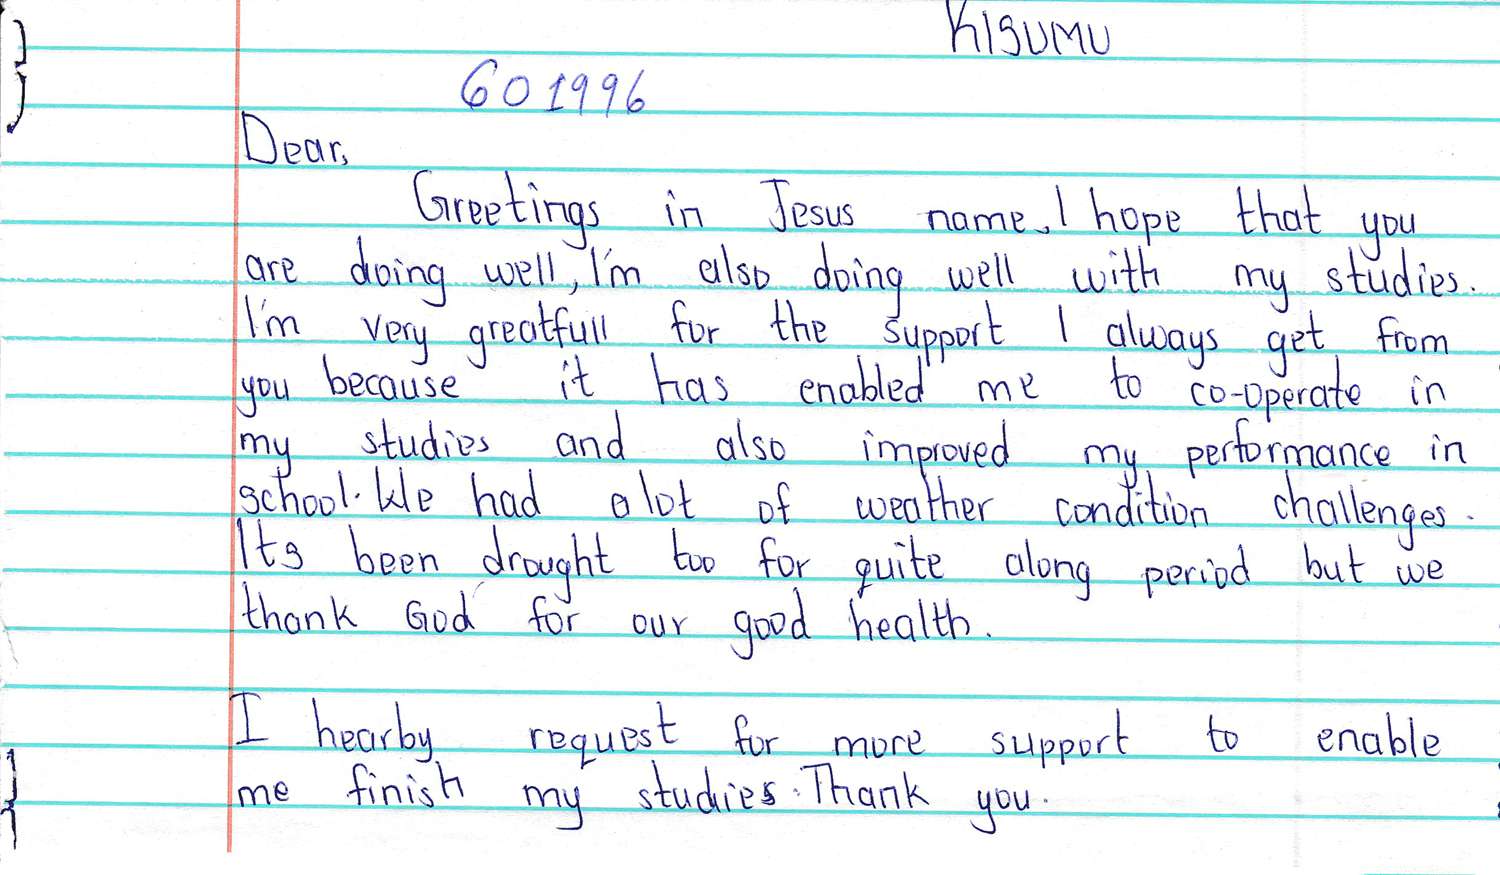 KISUMU
601996
Dear,
Greetings in Jesus name, I hope that you
are doing well, I'm also doing well with my studies.
I'm very greatfull for the support I always get from
you because it has enabled me to co-operate in
my studies and also improved my performance in
school. We had a lot of weather condition challenges.
Its been drought too for quite along period but we
thank God for our good health.
I hearby request for more support to enable
me finish my studies. Thank you.